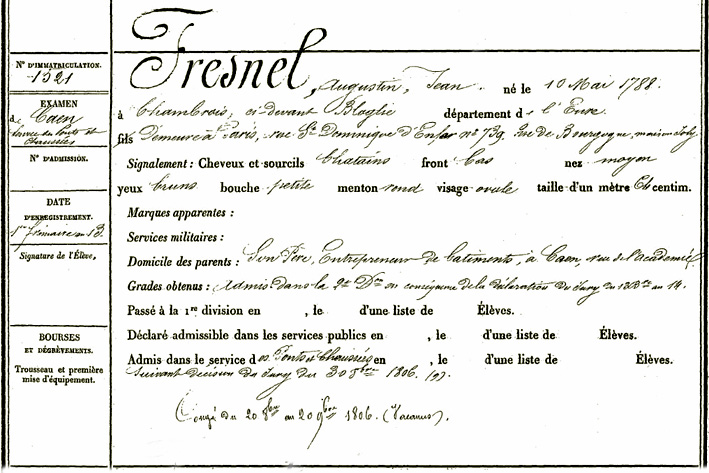 Fresnel, Augustin, Jean. né le 10 Mai 1788.
à Chambrois, ci-devant Bloglie département de l'Eure
fils Demeure à Paris, rue St Dominique d'Enfer no 739. Rue de Bourgogne, maison
Signalement : Cheveux et sourcils Chatains front bas nez moyen
yeux bruns bouche petite menton rond visage ovale taille d'un mètre 64 centim.
Marques apparentes :
Services militaires :
Domicile des parents : Son Père, Entrepreneur de batiments, à Caen, rue de l'academie
Grades obtenus : Admis dans la 2e Don en conséquence de la déclaration du Jury du an 14.
Passé à la 1re division en , le d'une liste de Élèves.
Déclaré admissible dans les services publics en , le d'une liste de Élèves.
Admis dans le service des Ponts et Chaussées en , le d'une liste de Élèves.
suivant décision du Jury du 30 8bre 1806.
Congé du 20 8bre au 20 9bre 1806. (Vacances).
No D'IMMATRICULATION.
1321
EXAMEN
de Caen
No D'ADMISSION.
DATE
D'ENREGISTREMENT.
1er frimaire an 13.
Signature de l'Élève,
BOURSES
ET DÉGRÈVEMENTS.
Trousseau et première
mise d'équipement.